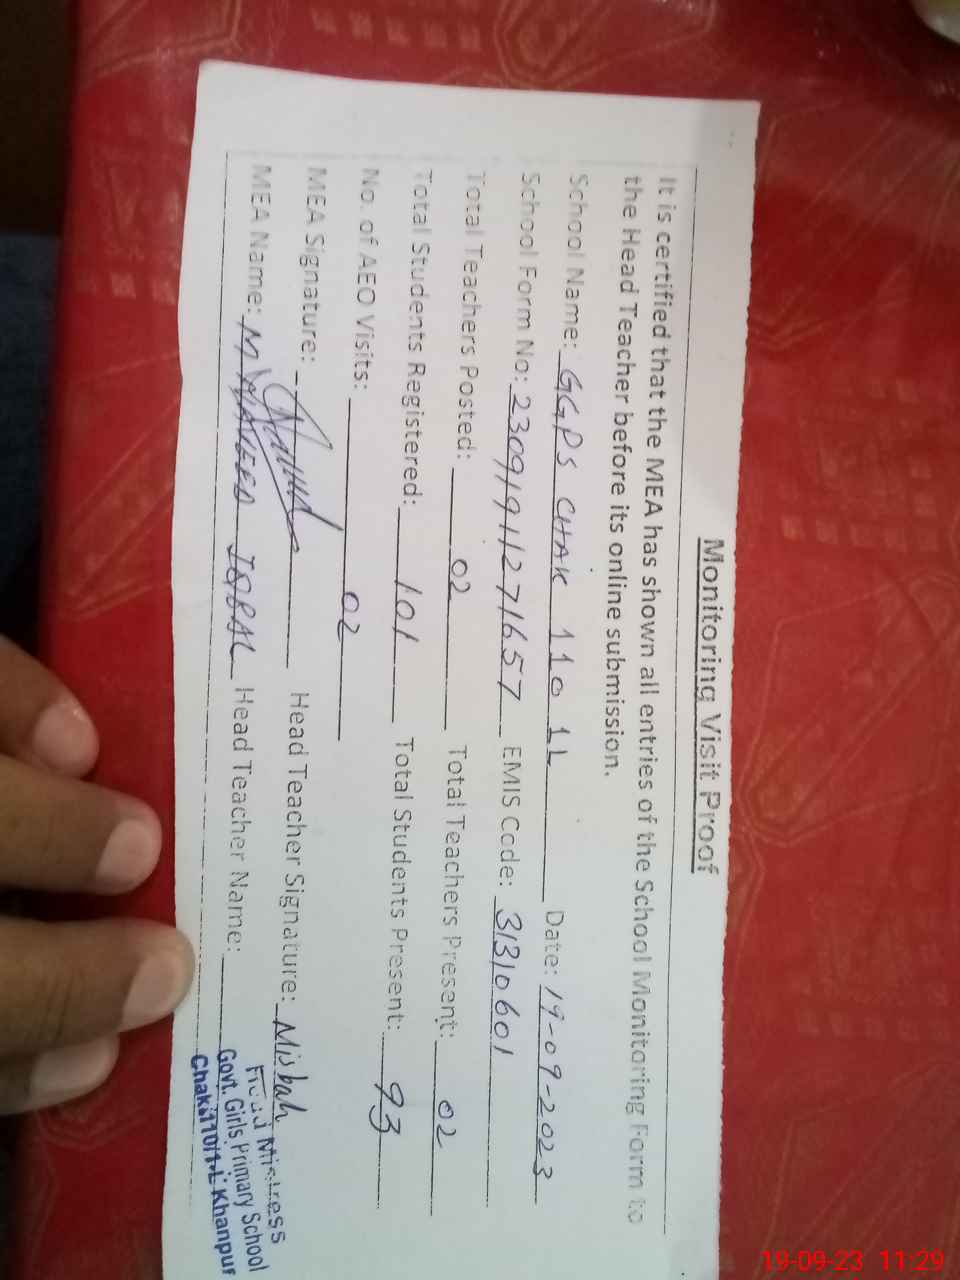 Monitoring Visit Proof
It is certified that the MEA has shown all entries of the School Monitoring Form to
the Head Teacher before its online submission.
School Name: GGPS CHAK 110 1L Date: 19-09-2023
School Form No: 23091911271657 EMIS Code: 31310601
Total Teachers Posted: 02 Total Teachers Present: 02
Total Students Registered: 101 Total Students Present: 93
No. of AEO Visits: 02
MEA Signature: Head Teacher Signature: Misbah
MEA Name: M NAVEED IQBAL Head Teacher Name:
Head Mistress
Govt. Girls Primary School
Chak 110/1-L Khanpur
19-09-23 11:29